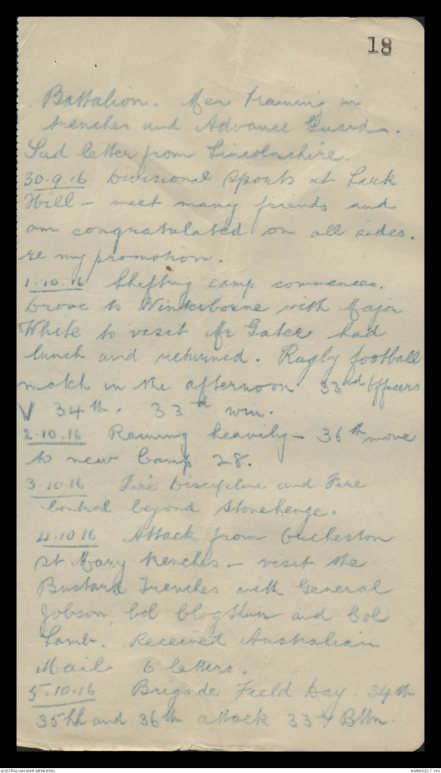 18
Battalion. Men training in
trenches and Advance Guards.
Sad letter from Lincolnshire.
30.9.16 Divisional Sports at Lark
Hill - meet many friends and
am congratulated on all sides.
re my promotion.
1.10.16 Shifting camp commences.
Drove to Winterborne with Major
White to visit Mr Gates had
lunch and returned. Rugby football
match in the afternoon 33rd Officers
V 34th. 33rd win.
2.10.16 Raining heavily - 36th move
to new Camp 28.
3.10.16 Fire Discipline and Fire
Control beyond Stonehenge.
4.10.16 Attack from Orcheston
St Mary trenches - visit the
Bustard Trenches with General
Jobson, Col and Col
Lamb. Received Australian
Mail. 6 letters.
5.10.16 Brigade Field Day. 34th
35th and 36th attack 33rd Battn.
AUSTRALIAN WAR MEMORIAL